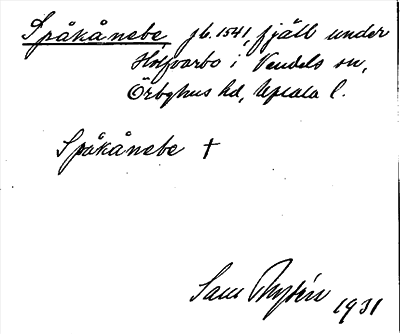 Spåkånebe jb. 1541, fjäll under
Hålfvarbo i Vendels sn,
Örbyhus hd, Upsala l.
Spåkånebe †
Sam Rystén 1931